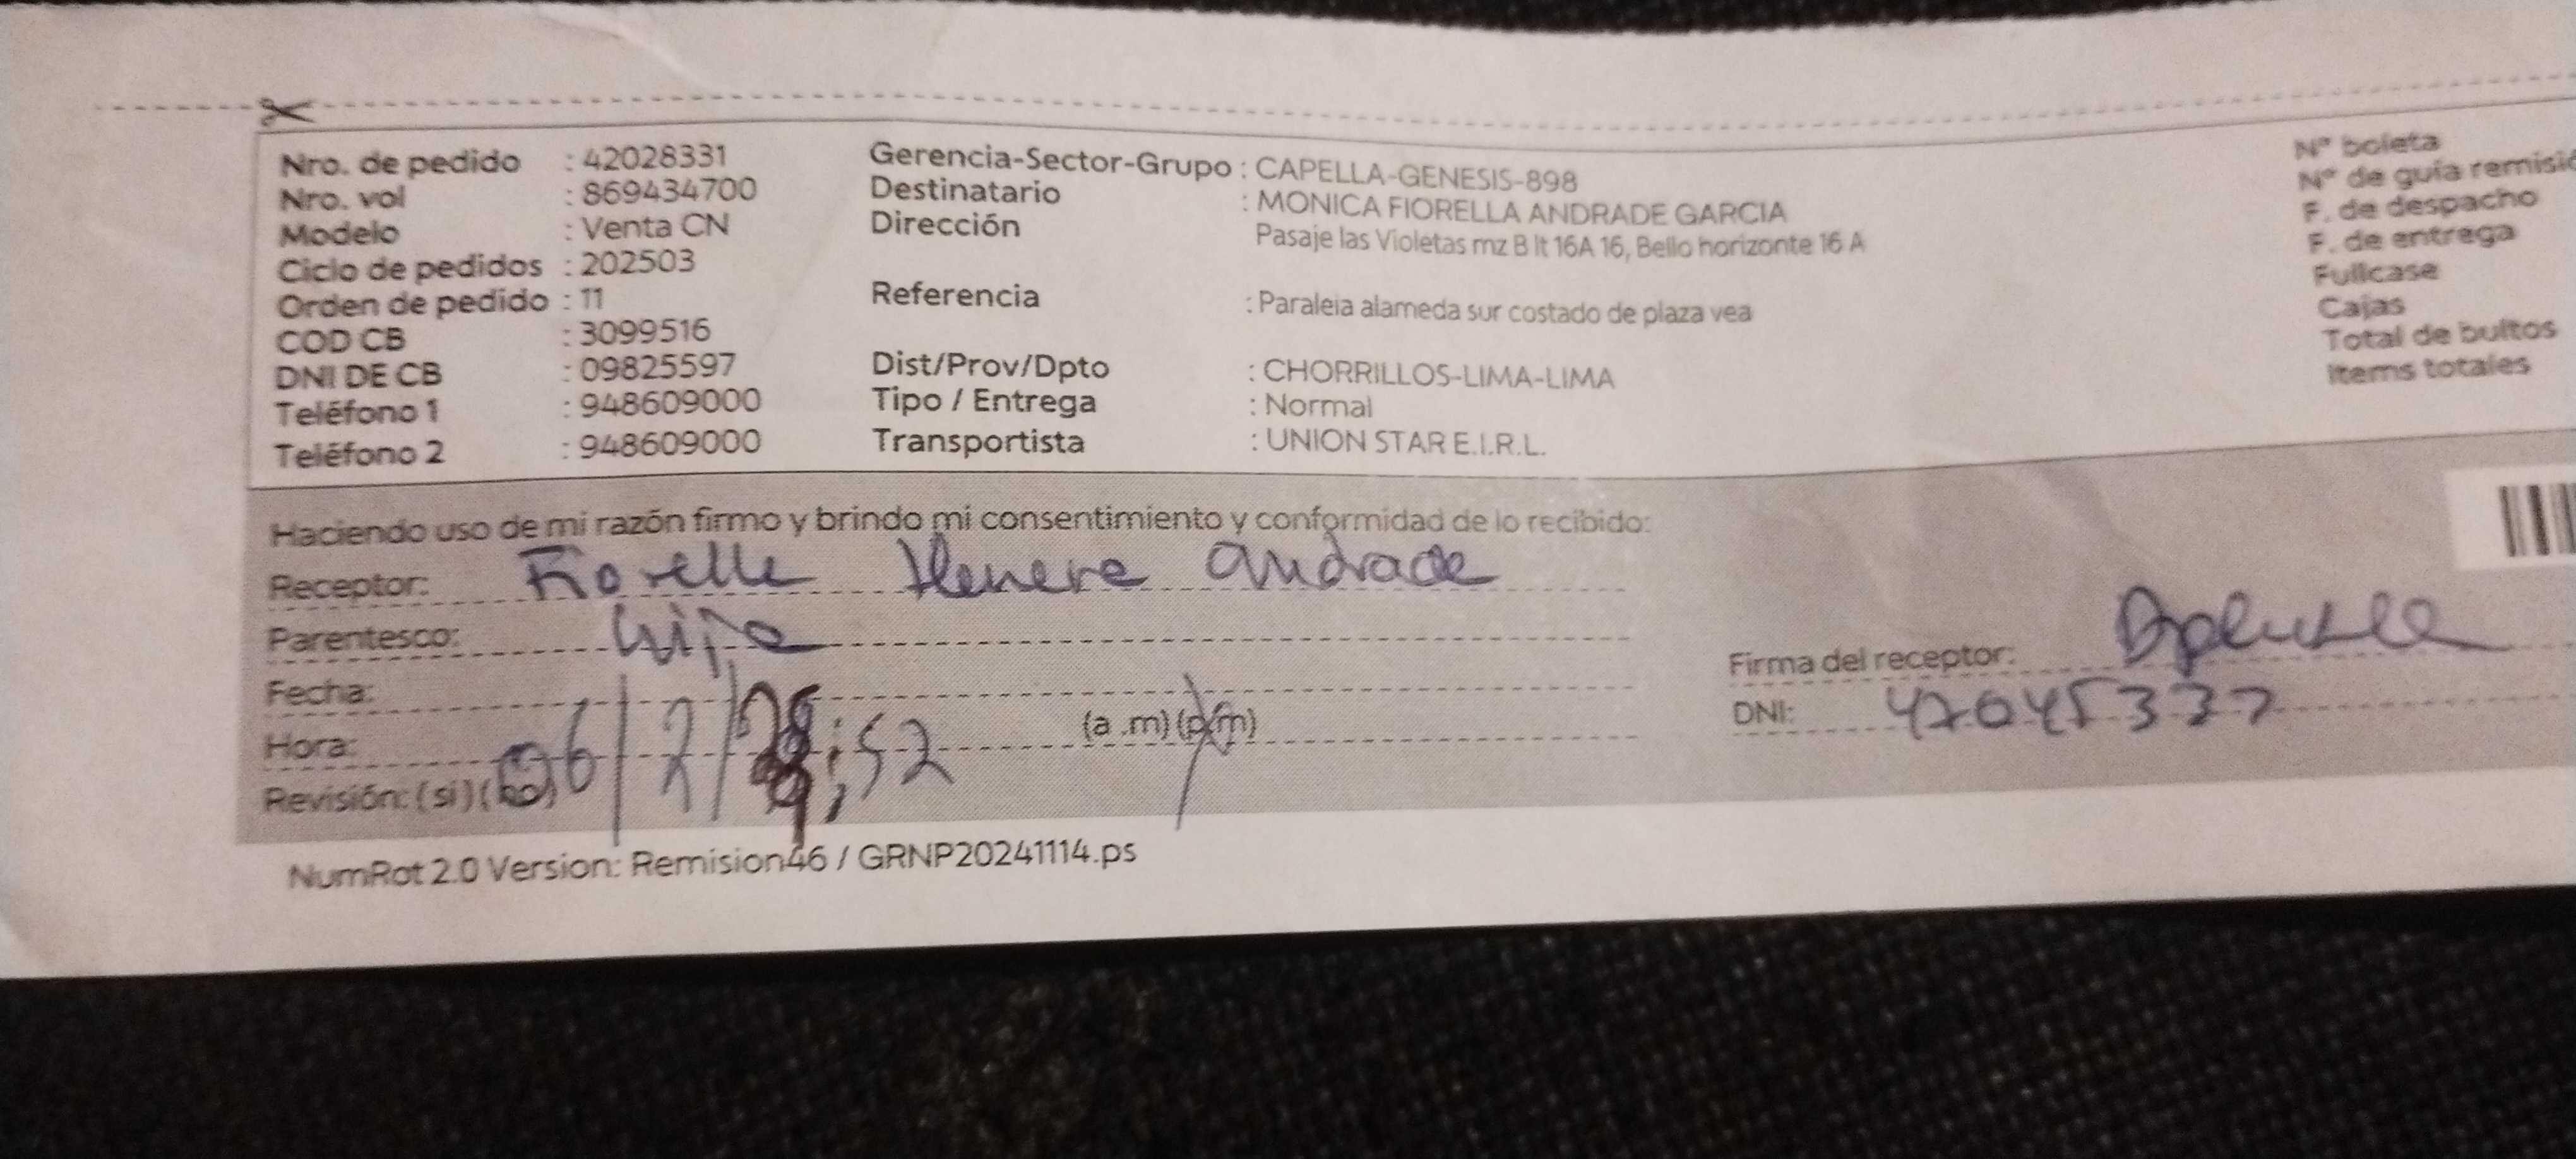 Nro. de pedido : 42028331
Nro. vol : 869434700
Modelo : Venta CN
Ciclo de pedidos : 202503
Orden de pedido : 11
COD CB : 3099516
DNI DE CB : 09825597
Teléfono 1 : 948609000
Teléfono 2 : 948609000
Gerencia-Sector-Grupo : CAPELLA-GENESIS-898
Destinatario : MONICA FIORELLA ANDRADE GARCIA
Dirección Pasaje las Violetas mz B lt 16A 16, Bello horizonte 16 A
Referencia : Paralela alameda sur costado de plaza vea
Dist/Prov/Dpto : CHORRILLOS-LIMA-LIMA
Tipo / Entrega : Normal
Transportista : UNION STAR E.I.R.L.
N° boleta
N° de guía remisió
F. de despacho
F. de entrega
Fullcase
Cajas
Total de bultos
Items totales
Haciendo uso de mi razón firmo y brindo mi consentimiento y conformidad de lo recibido:
Receptor: Andrade
Parentesco: hija
Fecha: 6/2/
Hora: :52 (a .m) (p.m)
Revisión: (si) (no)
Firma del receptor:
DNI:
NumRot 2.0 Version: Remision46 / GRNP20241114.ps